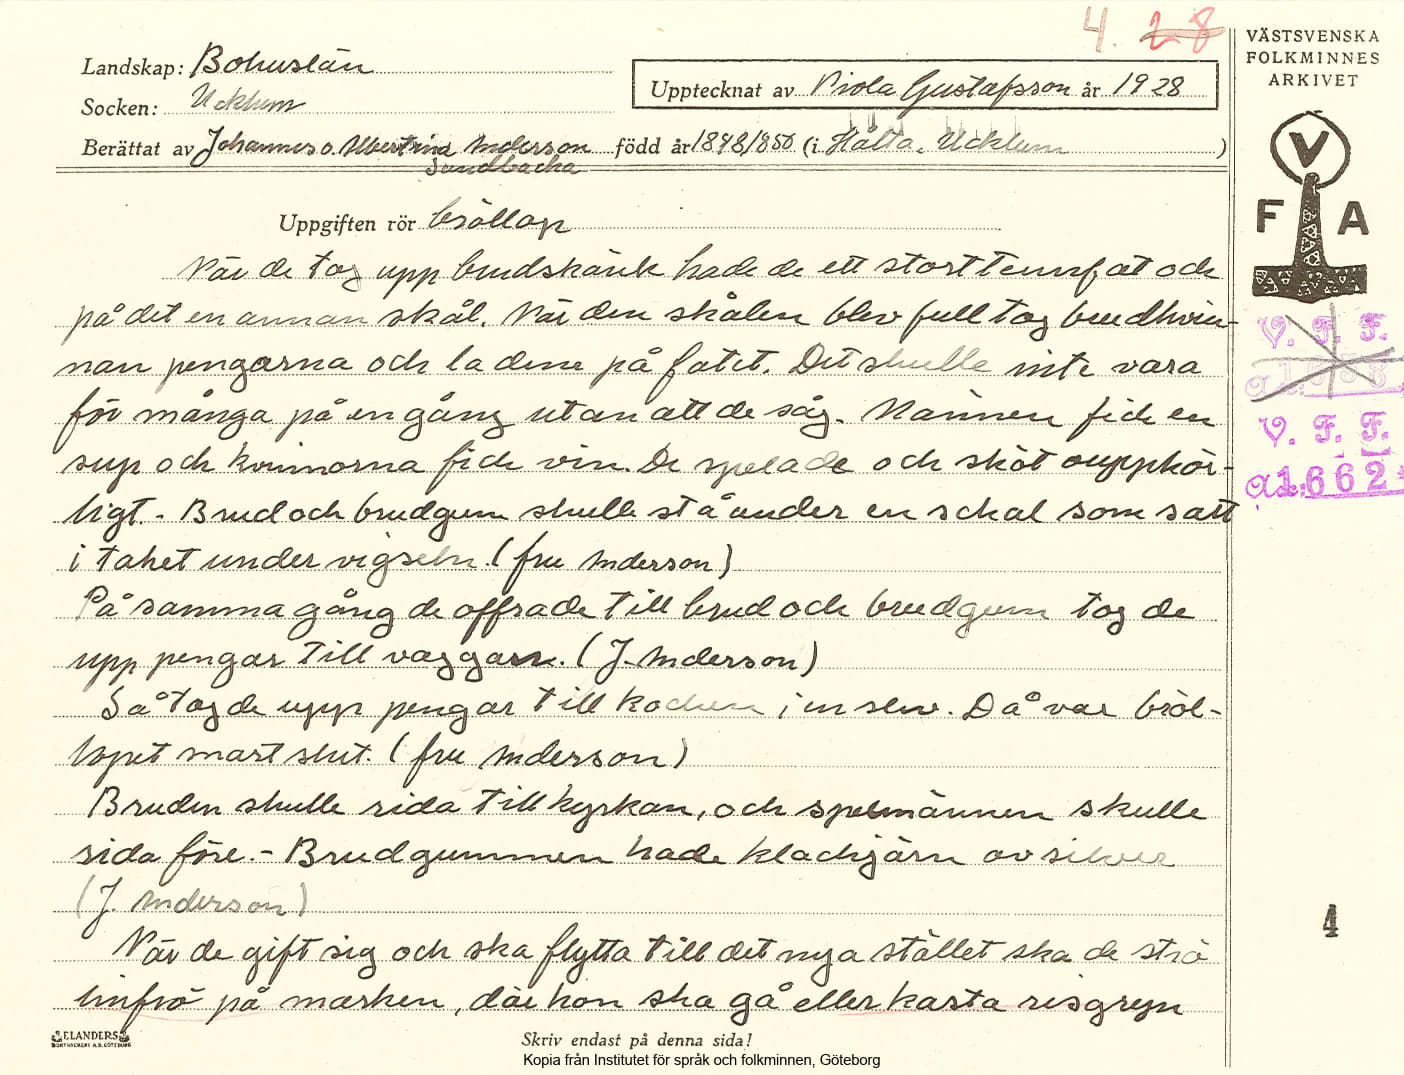 4. 28
Landskap: Bohuslän
Socken: Ucklum
Upptecknat av Viola Gustafsson år 1928
Berättat av Johannes o. Albertina Anderson född år 1848/1850 (i Hålta, Ucklum)
Sandbacka
VÄSTSVENSKA
FOLKMINNES
ARKIVET
V
F A
Uppgiften rör bröllop
När de tog upp brudskänk hade de ett stort tennfat och
på det en annan skål. När den skålen blev full tog brudkvin-
nan pengarna och la dene på fatet. Det skulle inte vara
för många på en gång utan att de såg. Männen fick en
sup och kvinnorna fick vin. De spelade och sköt oupphör-
ligt. - Brud och brudgum skulle stå under en schal som satt
i taket under vigseln. (fru Anderson)
På samma gång de offrade till brud och brudgum tog de
upp pengar till vaggan. (J. Anderson)
Så tog de upp pengar till kocken i en slev. Då var bröl-
lopet snart slut. (fru Anderson)
Bruden skulle rida till kyrkan, och spelmännen skulle
rida före. - Brudgummen hade klackjärn av silver
(J. Anderson)
När de gift sig och ska flytta till det nya stället ska de strö
linfrö på marken, där hon ska gå eller kasta risgryn
V. F. F.
V. F. F.
1662
4
ELANDERS
BOKTRYCKERI A.B. GÖTEBORG
Skriv endast på denna sida!
Kopia från Institutet för språk och folkminnen, Göteborg